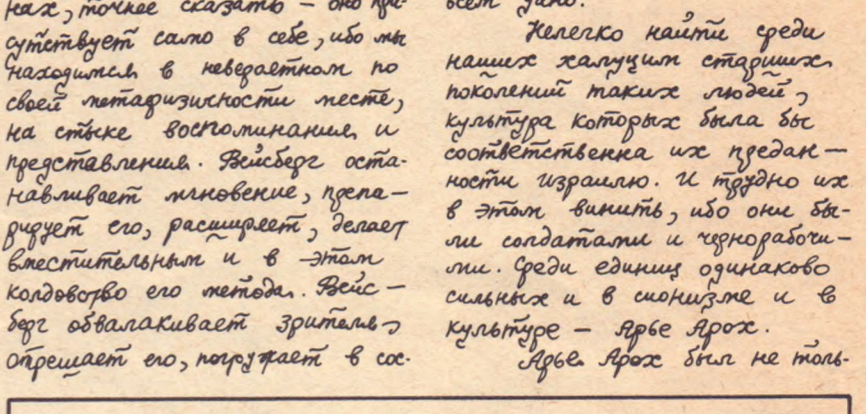 нах, точнее сказать — оно при-
сутствует само в себе, ибо мы
находимся в невероятном по
своей метафизичности месте,
на стыке воспоминания и
представления. Вейсберг оста-
навливает мгновение, препа-
рирует его, расширяет, делает
вместительным и в этом
колдовство его метода. Вейс-
берг обвалакивает зрителя,
отрешает его, погружает в сос-
всем дано.
Нелегко найти среди
наших халуцим старших
поколений таких людей,
культура которых была бы
соответственна их предан-
ности Израилю. И трудно их
в этом винить, ибо они бы-
ли солдатами и чернорабочи-
ми. Среди единиц одинаково
сильных и в сионизме и в
культуре — Арье Арох.
Арье Арох был не толь-